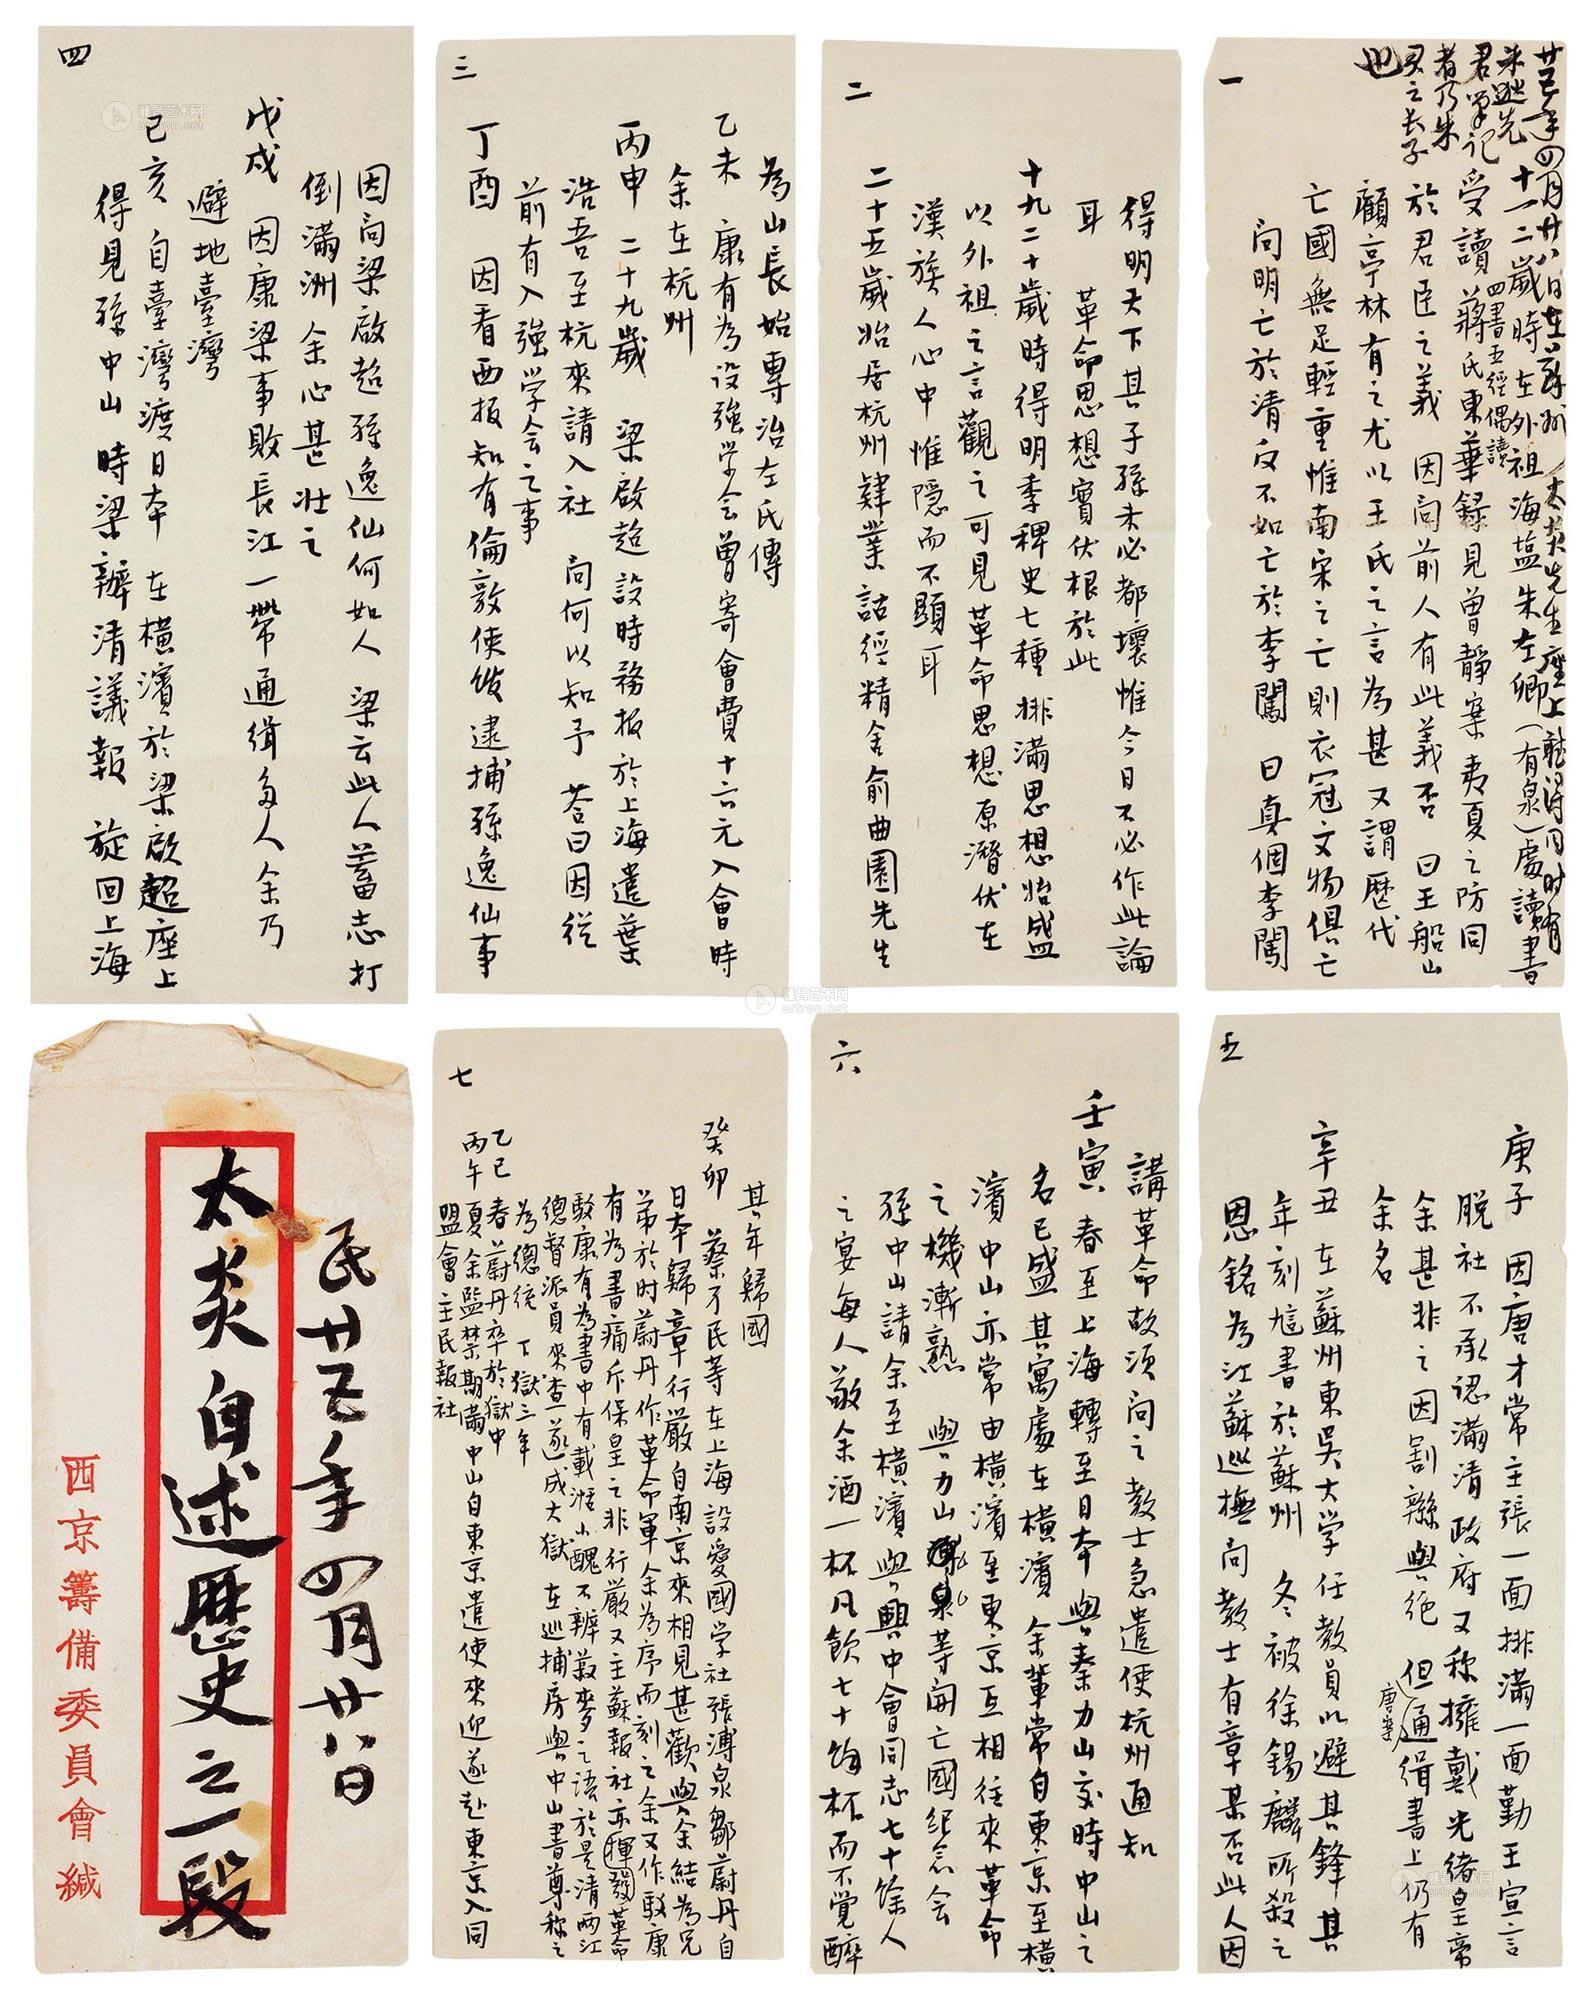 一
廿五年四月廿八日在蘇州太炎先生座上聽得同时有
朱逖先
君筆记
者乃朱
君之长子
也
十一二歲時在外祖海盐朱左卿(有泉)處讀書
四書五經偶讀
受讀蔣氏東華録見曾靜案夷夏之防同
於君臣之義 因问前人有此義否 曰王船山
顧亭林有之尤以王氏之言為甚又謂歷代
亡國無足輕重惟南宋之亡則衣冠文物俱亡
问明亡於清反不如亡於李闖 曰真個李闖
二
得明天下其子孫未必都壞惟今日不必作此論
耳 革命思想實伏根於此
十九二十歲時得明季稗史七種排滿思想始盛
以外祖之言觀之可見革命思想原潛伏在
漢族人心中惟隱而不顯耳
二十五歲始居杭州肄業詁經精舍俞曲園先生
三
為山長始專治左氏傳
乙未 康有為设強学会曾寄會費十六元入會時
余在杭州
丙申 二十九歲 梁啟超設時務报於上海遣葉
浩吾至杭來請入社 问何以知予 荅曰因從
前有入強学会之事
丁酉 因看西报知有倫敦使馆逮捕孫逸仙事
四
因向梁啟超孫逸仙何如人 梁云此人蓄志打
倒滿洲 余心甚壮之
戊戌 因康梁事敗長江一帶通緝多人余乃
避地臺灣
己亥 自臺灣渡日本 在橫濱於梁啟超座上
得見孫中山 時梁辦清議報 旋回上海
五
庚子 因唐才常主張一面排滿一面勤王宣言
脱社不承認滿清政府又称擁戴光绪皇帝
余甚非之因割辮與绝 但通缉書上仍有
唐案
余名
辛丑 在蘇州東吳大学任教員以避其鋒其
年刻訄書於蘇州 冬被徐錫麟所殺之
恩銘為江蘇巡撫向教士有章某否此人因
六
講革命故须问之教士急遣使杭州通知
壬寅 春至上海轉至日本與秦力山交時中山之
名已盛其寓處在橫濱余輩常自東京至橫
濱中山亦常由橫濱至東京互相往來革命
之機漸熟 與力山等開亡國纪念会
孫中山請余至橫濱與興中會同志七十餘人
之宴每人敬余酒一杯凡飲七十餘杯而不覚醉
七
其年歸國
癸卯 蔡孑民等在上海設愛國学社張溥泉鄒蔚丹自
日本歸章行嚴自南京來相見甚歡與余結為兄
弟於时蔚丹作革命軍余為序而刻之余又作駁康
有為書痛斥保皇之非行嚴又主蘇報社亦揮發革命
駁康有為書中有載湉小醜不辨菽麥之语於是清两江
總督派員來查遂成大獄 在巡捕房與中山書尊称之
為總统 下獄三年
乙巳 春蔚丹卒於獄中
丙午夏余監禁期滿中山自東京遣使來迎遂赴東京入同
盟會主民報社
民廿五年四月廿八日
太炎自述歷史之一段
西京籌備委員會緘
雅昌艺术网
artron.net